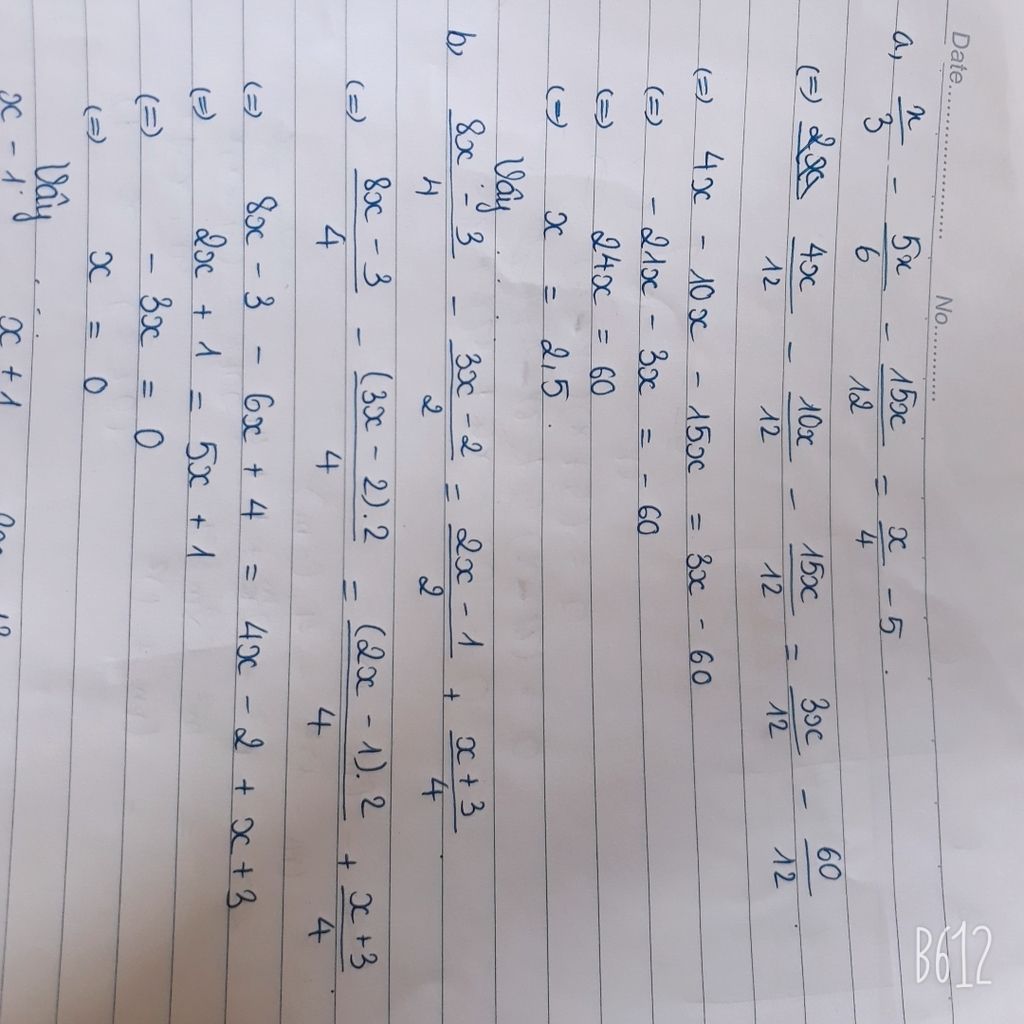 Date.................... No................
a, x/3 - 5x/6 - 15x/12 = x/4 - 5.
(=) 4x/12 - 10x/12 - 15x/12 = 3x/12 - 60/12
(=) 4x - 10x - 15x = 3x - 60
(=) - 21x - 3x = - 60
(=) 24x = 60
(=) x = 2,5.
Vậy ...
b, 8x - 3/4 - 3x - 2/2 = 2x - 1/2 + x + 3/4.
(=) 8x - 3/4 - (3x - 2).2/4 = (2x - 1).2/4 + x + 3/4.
(=) 8x - 3 - 6x + 4 = 4x - 2 + x + 3
(=) 2x + 1 = 5x + 1
(=) - 3x = 0
(=) x = 0
Vậy ...
x - 1 x + 1
B612